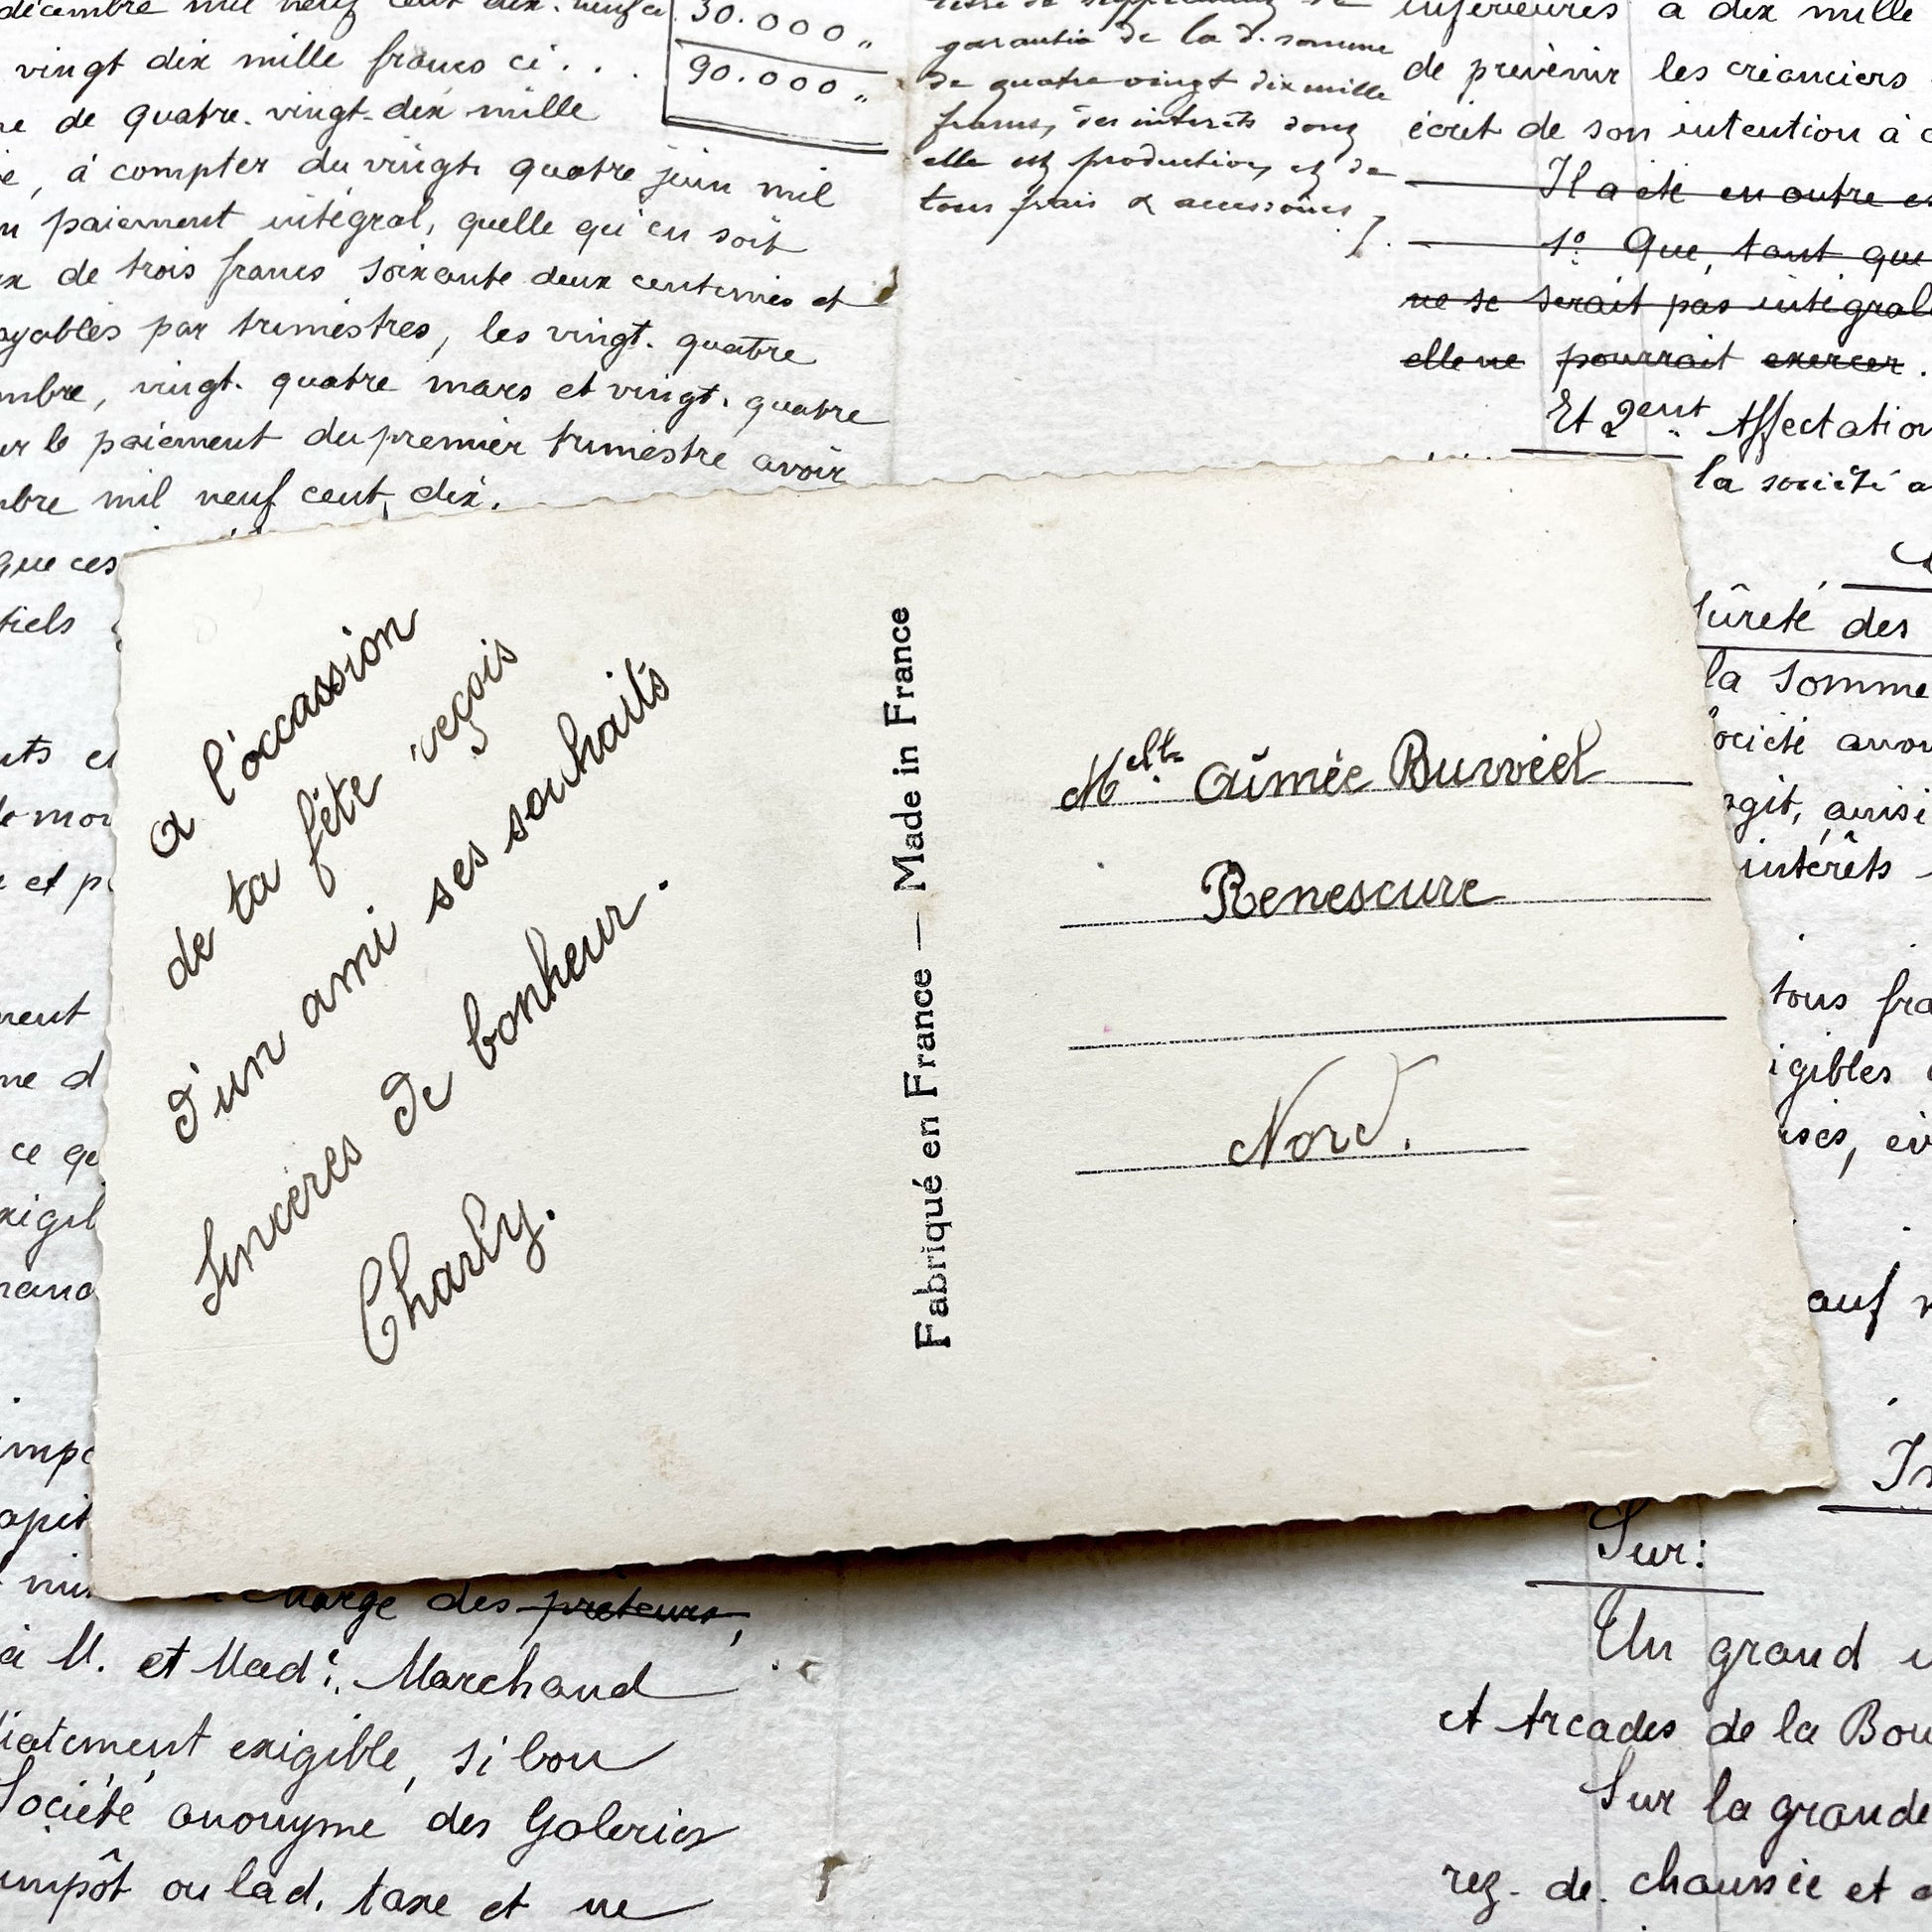 décembre mil neuf cent dix. neuf ci
30.000 "
vingt dix mille francs ci . . .
90.000 "
de quatre. vingt. dix mille
, à compter du vingt. quatre juin mil
paiement intégral, quelle qu'en soit
de trois francs soixante deux centimes et
payables par trimestres, les vingt. quatre
mbre, vingt. quatre mars et vingt. quatre
le paiement du premier trimestre avoir
mbre mil neuf cent dix.
que ces
tiels
garantie de la d. somme
de quatre vingt dix mille
francs, des intérêts dont
elle est productive, et de
tous frais & accessoires ./.
inférieures à dix mille
de prévenir les créanciers
écrit de son intention à
Il a été en outre
1º. Que, tant que
ne se serait pas intégral
elle ne pourrait exercer .
Et 2ent. Affectation
la société a
Sûreté des
la somme
Société anon
agit, ainsi
intérêts
tous fra
igibles
auf
a l'occassion
de ta fête reçois
d'un ami ses souhaits
Sincères de bonheur.
Charly.
Fabriqué en France — Made in France
Melle. Aimée Buvviel
Renescure
Nord.
ce qu
et p
charge des prêteurs,
à M. et Made. Marchand
diatement exigible, si bon
Société anonyme des Galeries
impôt ou lad. taxe et ne
Sur:
Un grand
et Arcades de la Bou
Sur la grande
rez. de. chaussée et